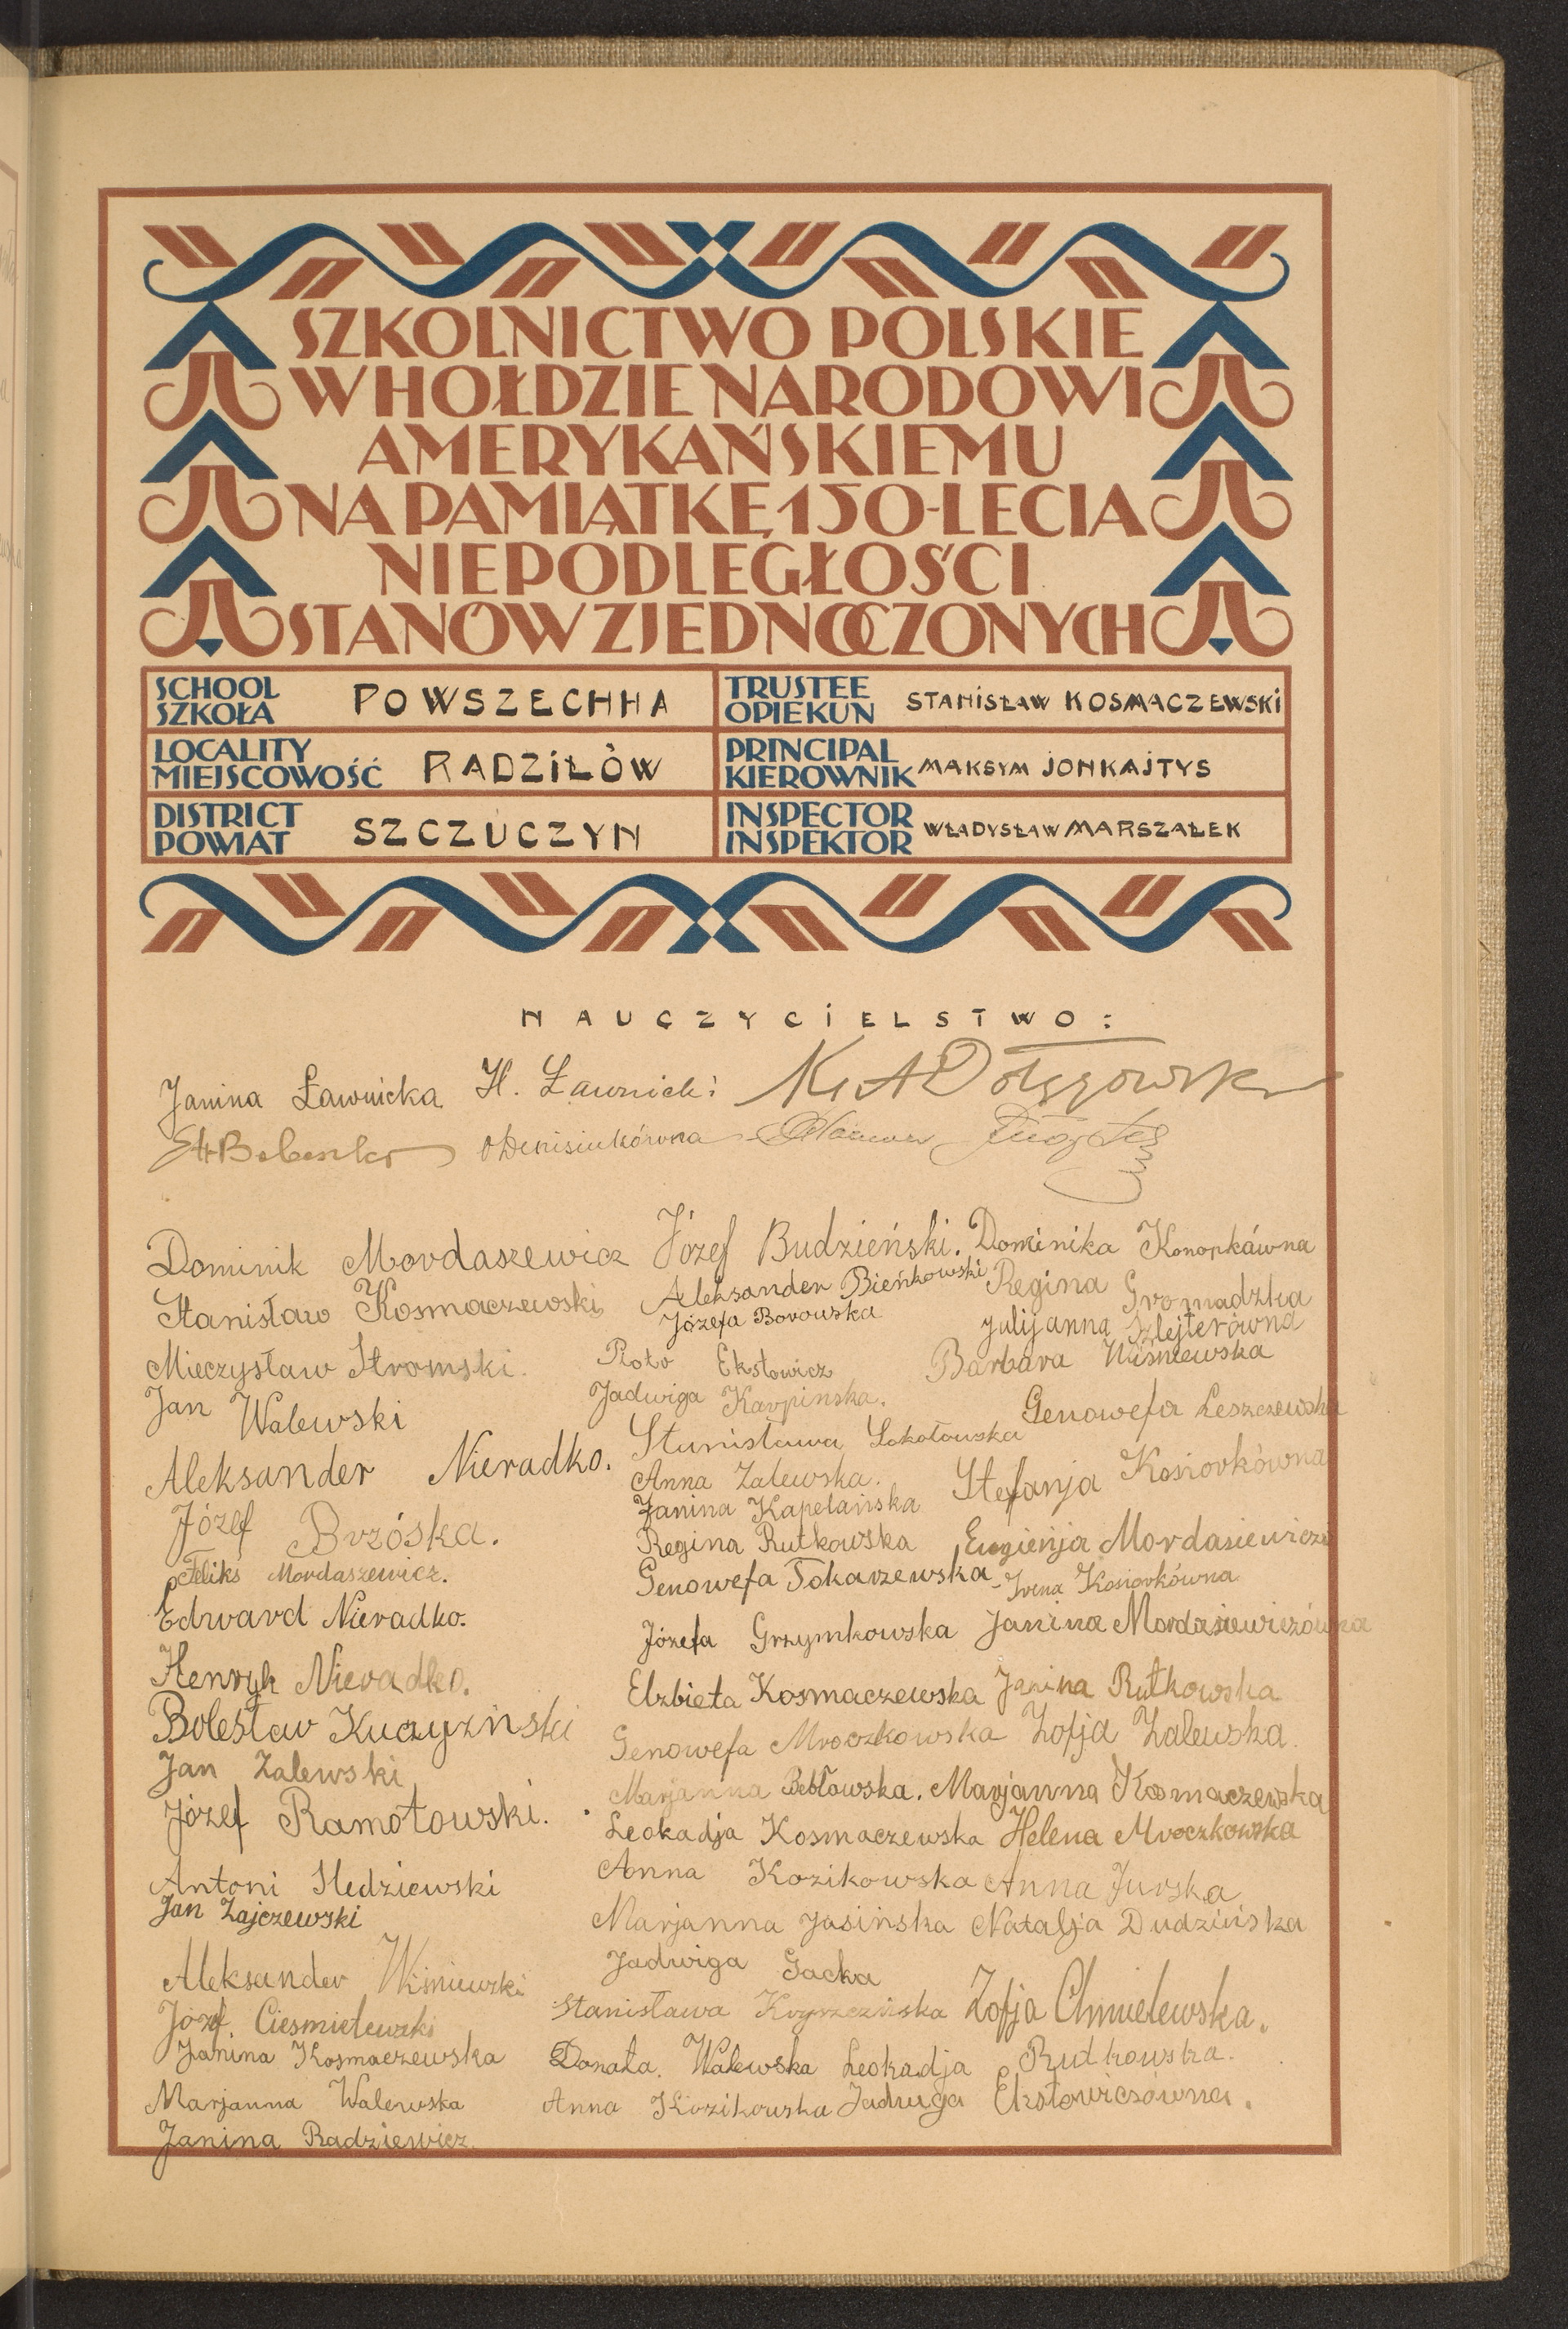 SZKOLNICTWO POLSKIE
W HOŁDZIE NARODOWI
AMERYKAŃSKIEMU
NA PAMIĄTKĘ 150-LECIA
NIEPODLEGŁOŚCI
STANÓW ZJEDNOCZONYCH
SCHOOL
SZKOŁA
POWSZECHNA
TRUSTEE
OPIEKUN
STANISŁAW KOSMACZEWSKI
LOCALITY
MIEJSCOWOŚĆ
RADZIŁÓW
PRINCIPAL
KIEROWNIK
MAKSYM JONKAJTYS
DISTRICT
POWIAT
SZCZUCZYN
INSPECTOR
INSPEKTOR
WŁADYSŁAW MARSZAŁEK
NAUCZYCIELSTWO:
Janina Ławnicka H. Ławnicki
Denisiukówna
Dominik Mordaszewicz
Stanisław Kosmaczewski
Mieczysław Stromski.
Jan Walewski
Aleksander Nieradko.
Józef Brzóska.
Feliks Mordaszewicz.
Edward Nieradko.
Henryk Nieradko.
Bolesław Kuczyzński
Jan Zalewski
Józef Ramotowski.
Antoni Sledziewski
Jan Zajczewski
Aleksander Wiśniewski
Józef. Ciesmielewski
Janina Kosmaczewska
Marjanna Walewska
Janina Radziewicz.
Józef Budzieński.
Aleksander Bieńkowski
Józefa Borowska
Piotr Eksłowicz
Jadwiga Karpinska.
Stanisława Sokołowska
Anna Zalewska.
Janina Kapelańska
Regina Rutkowska
Genowefa Tokarzewska
Józefa Grzymkowska
Elzbieta Kosmaczewska
Genowefa Mroczkowska
Marjanna Bebłowska.
Leokadja Kosmaczewska
Anna Kozikowska
Marjanna Jasińska
Jadwiga Gacka
Stanisława
Donata. Walewska
Anna Kozikowska
Dominika Konopkówna
Regina Gromadzka
Julijanna Szlejterówna
Barbara Wiśniewska
Genowefa Leszczewska
Stefanja Kosiorkówna
Eugienja Mordasiewiczó
Irena Kosiorkówna
Janina Mordasiewiczówna
Janina Rutkowska
Zofja Zalewska.
Marjanna Kosmaczewska
Helena Mroczkowska
Anna Jurska
Natalja Dudzińska
Zofja Chmielewska.
Leokadja Rutkowska.
Jadwiga Eksłowiczówna.